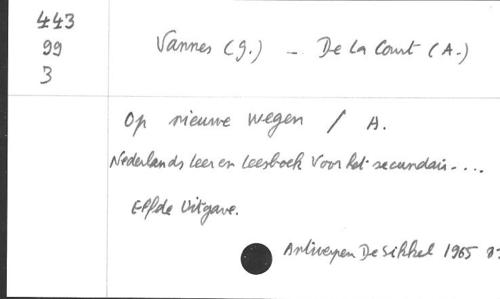 443
99
3
Vannes (G.) - De la Court (A.)
Op nieuwe wegen / A.
Nederlands leer en leesboek voor het secundair....
Elfde Uitgave.
Antwerpen De Sikkel 1965